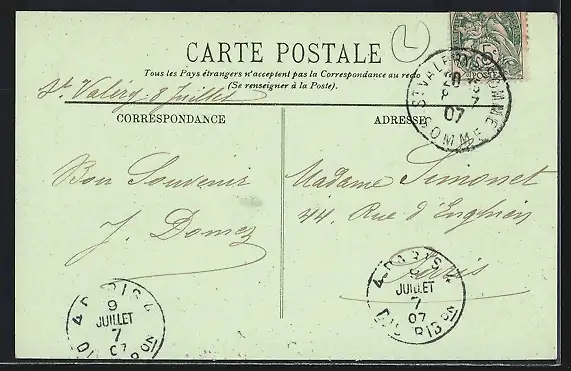 CARTE POSTALE
Tous les Pays étrangers n'acceptent pas la Correspondance au recto
(Se renseigner à la Poste).
St Valéry 8 Juillet
CORRESPONDANCE
ADRESSE
Bon Souvenir
J. Domez
Madame Simonet
44, Rue d'Enghien
Paris
5c
POSTES
ST VALERY S SOMME
20
8 7
07
SOMME
PARIS 4
9
JUILLET
7
07
PARIS 4
9
JUILLET
7
07